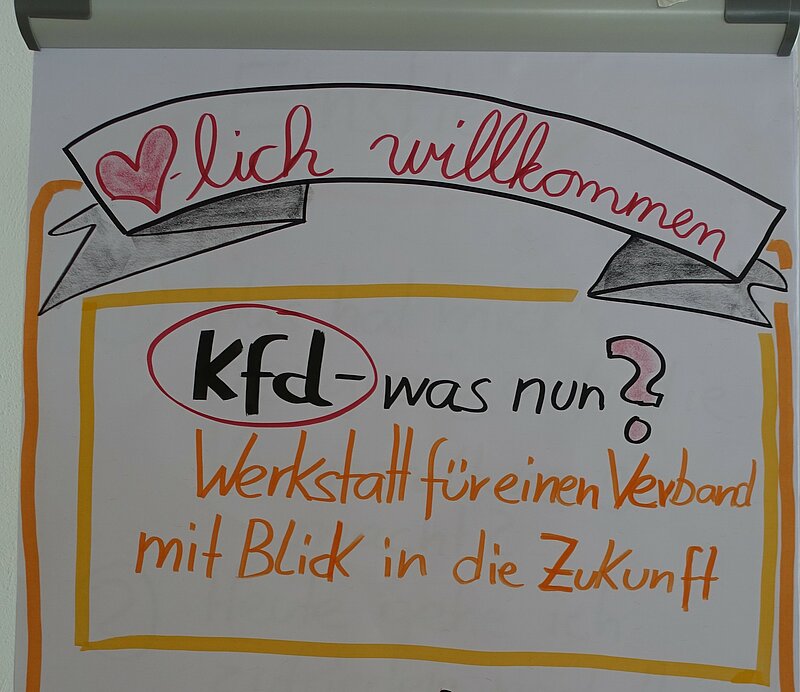 ❤-lich willkommen
Kfd- was nun?
Werkstatt für einen Verband
mit Blick in die Zukunft